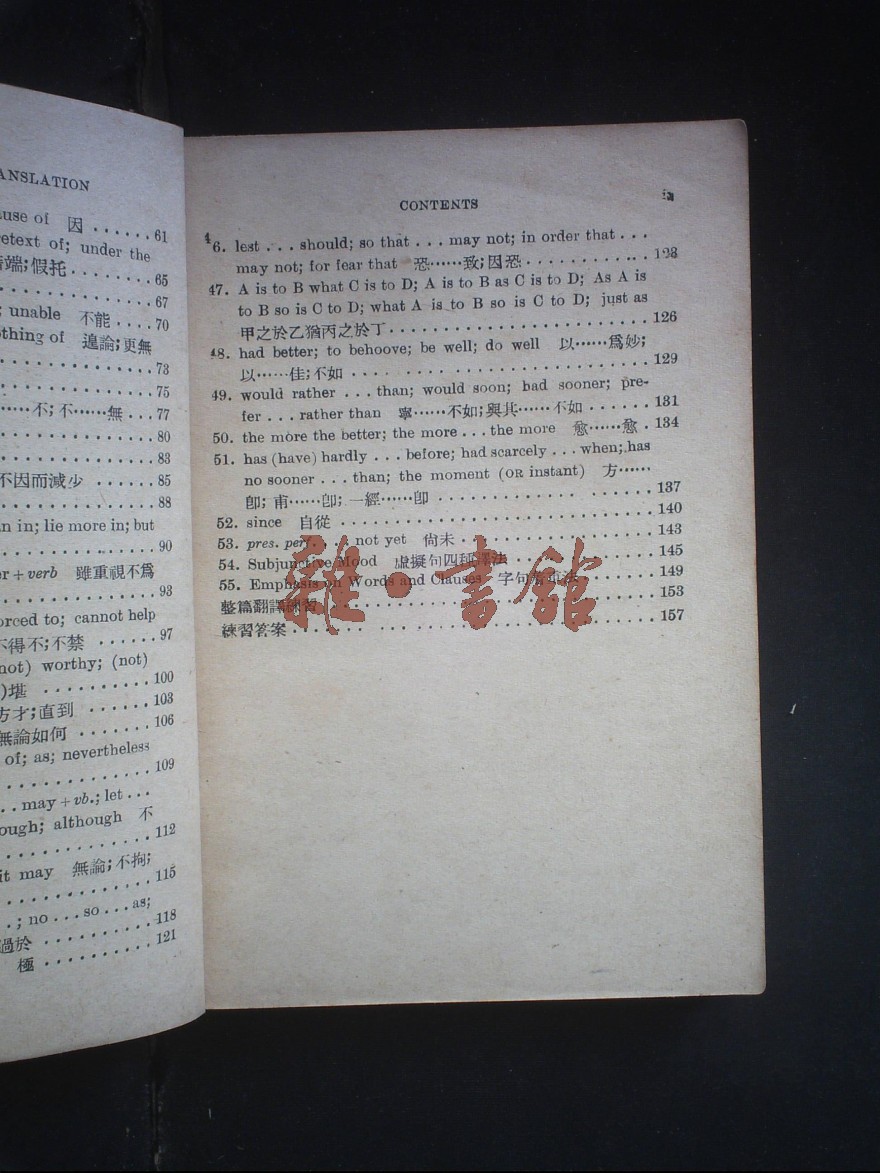 ANSLATION
use of 因 ...... 61
etext of; under the
端;假托 ........ 65
........ 67
; unable 不能 .... 70
thing of 遑論;更無
........ 73
........ 75
……不;不……無 ... 77
........ 80
........ 83
不因而減少 ...... 85
........ 88
n in; lie more in; but
........ 90
er + verb 雖重視不爲
........ 93
orced to; cannot help
不得不;不禁 ...... 97
not) worthy; (not)
)堪 .......... 100
方才;直到 ...... 103
無論如何 ....... 106
of; as; nevertheless
........ 109
.. may + vb.; let ...
ough; although 不
........ 112
it may 無論;不拘;
........ 115
.; no ... so ... as;
........ 118
過於 .......... 121
極 ..........
CONTENTS
46. lest ... should; so that ... may not; in order that ...
may not; for fear that 恐……致;因恐 ............ 123
47. A is to B what C is to D; A is to B as C is to D; As A is
to B so is C to D; what A is to B so is C to D; just as
甲之於乙猶丙之於丁 ........................ 126
48. had better; to behoove; be well; do well 以……爲妙;
以……佳;不如 ........................ 129
49. would rather ... than; would soon; had sooner; pre-
fer ... rather than 寧……不如;與其……不如 ...... 131
50. the more the better; the more ... the more 愈……愈 . 134
51. has (have) hardly ... before; had scarcely ... when; has
no sooner ... than; the moment (OR instant) 方……
卽; 甫……卽; 一經……卽 .................. 137
52. since 自從 .............................. 140
53. pres. perf. ... not yet 尙未 .................. 143
54. Subjunctive Mood 虛擬句四種譯法 ............ 145
55. Emphasis on Words and Clauses 字句 ........ 149
整篇翻譯練習 .............................. 153
練習答案 .............................. 157
雜·書館